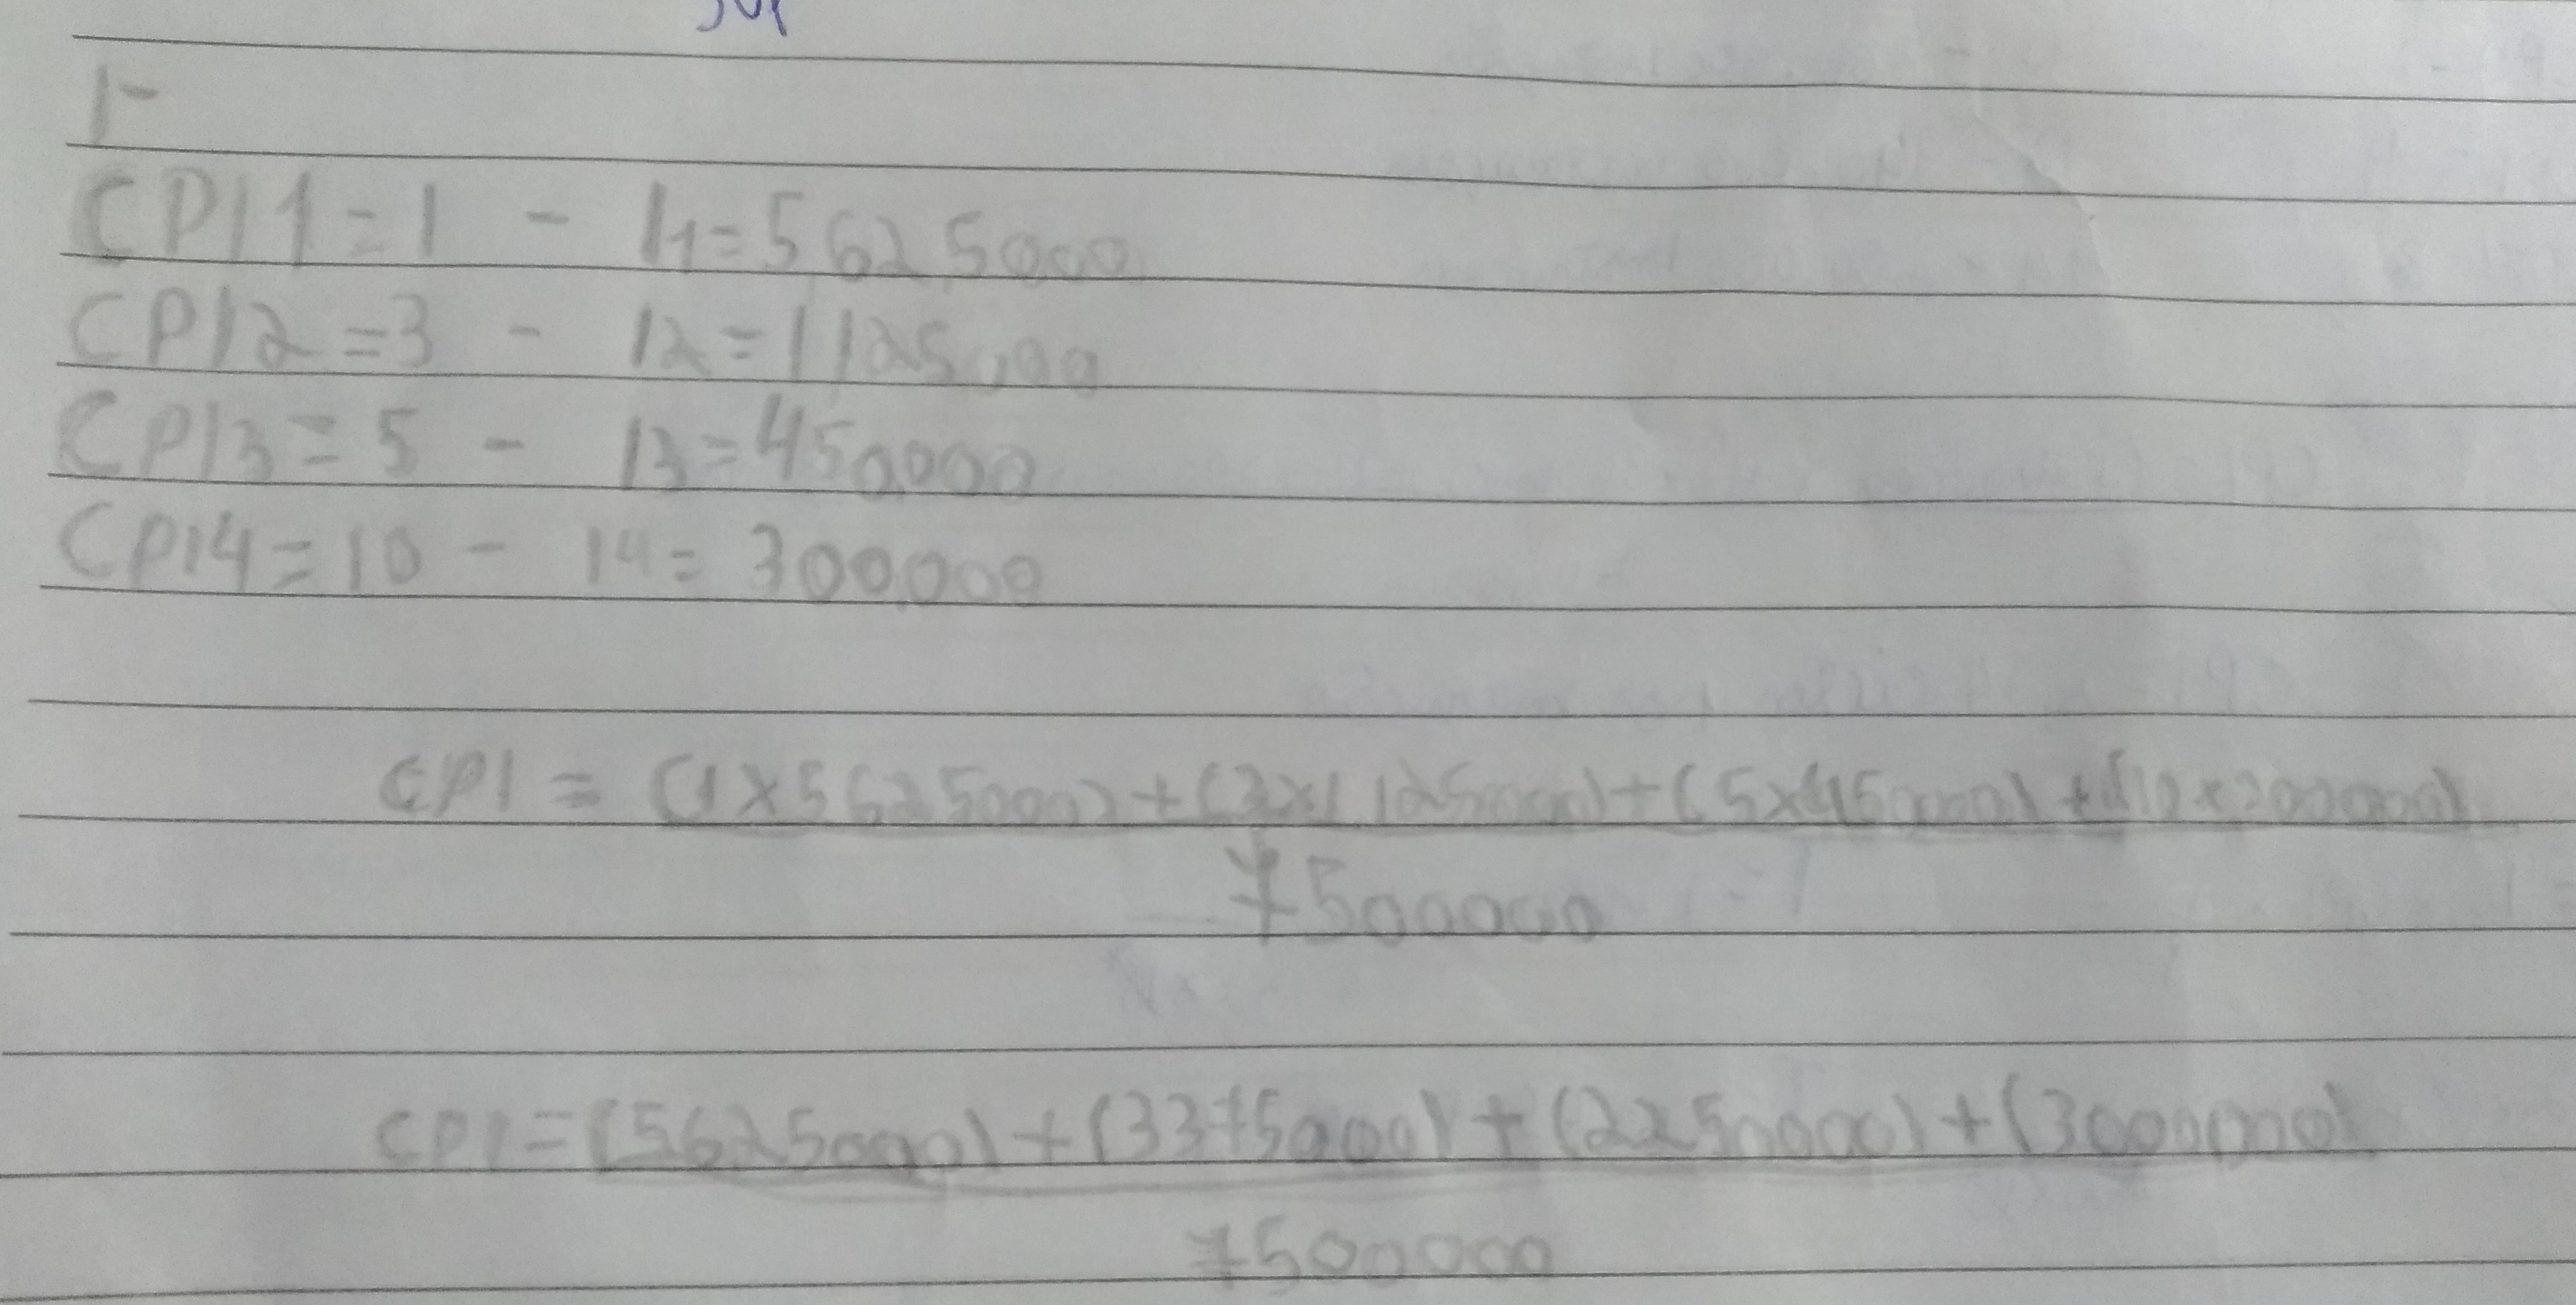 1-
CPI1=1 - I1=5625000
CPI2=3 - I2=1125000
CPI3=5 - I3=450000
CPI4=10 - I4=300000
CPI = (1x5625000)+(3x1125000)+(5x450000)+(10x300000)
7500000
CPI=(5625000)+(3375000)+(2250000)+(3000000)
7500000